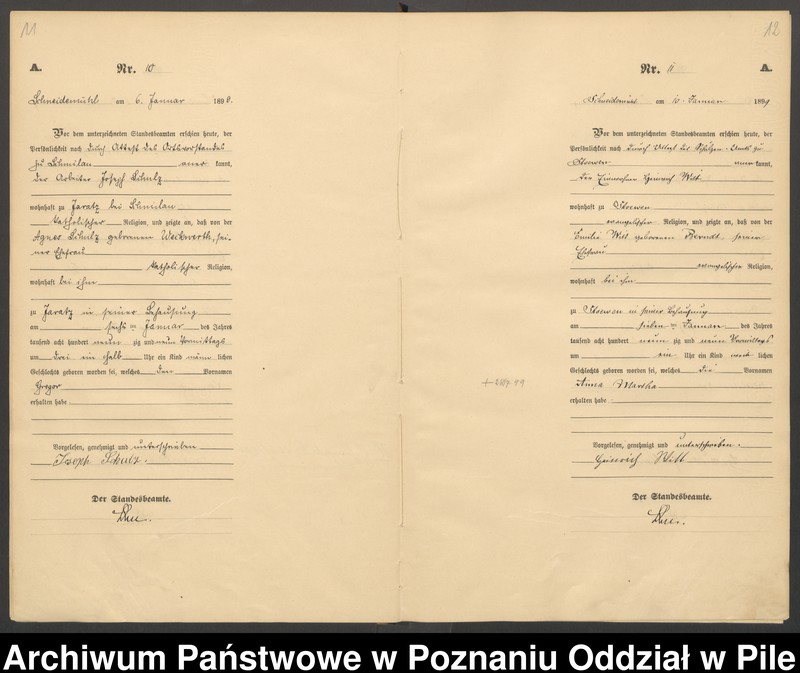 11
A.
Nr. 10
Schneidemühl am 6. Januar 1899.
Vor dem unterzeichneten Standesbeamten erschien heute, der
Persönlichkeit nach durch Attest des Ortsvorstandes
zu Schmilau aner kannt,
der Arbeiter Joseph Schulz
wohnhaft zu Jaratz bei Schmilau
katholischer Religion, und zeigte an, daß von der
Agnes Schulz geborenen Weikwerth, sei-
ner Ehefrau
katholischer Religion,
wohnhaft bei ihm
zu Jaratz in seiner Behausung
am sechsten Januar des Jahres
tausend acht hundert neun zig und neun Vormittags
um drei ein halb Uhr ein Kind männ lichen
Geschlechts geboren worden sei, welches den Vornamen
Gregor
erhalten habe
Vorgelesen, genehmigt und unterschrieben
Joseph Schulz.
Der Standesbeamte.
12
Nr. 11
A.
Schneidemühl am 10 Januar 1899
Vor dem unterzeichneten Standesbeamten erschien heute, der
Persönlichkeit nach durch Attest des Schulzen-Amts zu
Stoewen anerkannt,
der Einwohner Heinrich Witt
wohnhaft zu Stoewen
evangelischer Religion, und zeigte an, daß von der
Emilie Witt geborenen Berndt, seiner
Ehefrau
evangelischer Religion,
wohnhaft bei ihm
zu Stoewen in seiner Behausung
am sieben ten Januar des Jahres
tausend acht hundert neun zig und neun Vormittags
um ein Uhr ein Kind weib lichen
Geschlechts geboren worden sei, welches die Vornamen
Anna Martha
erhalten habe
Vorgelesen, genehmigt und unterschrieben.
Heinrich Witt
Der Standesbeamte.
Archiwum Państwowe w Poznaniu Oddział w Pile